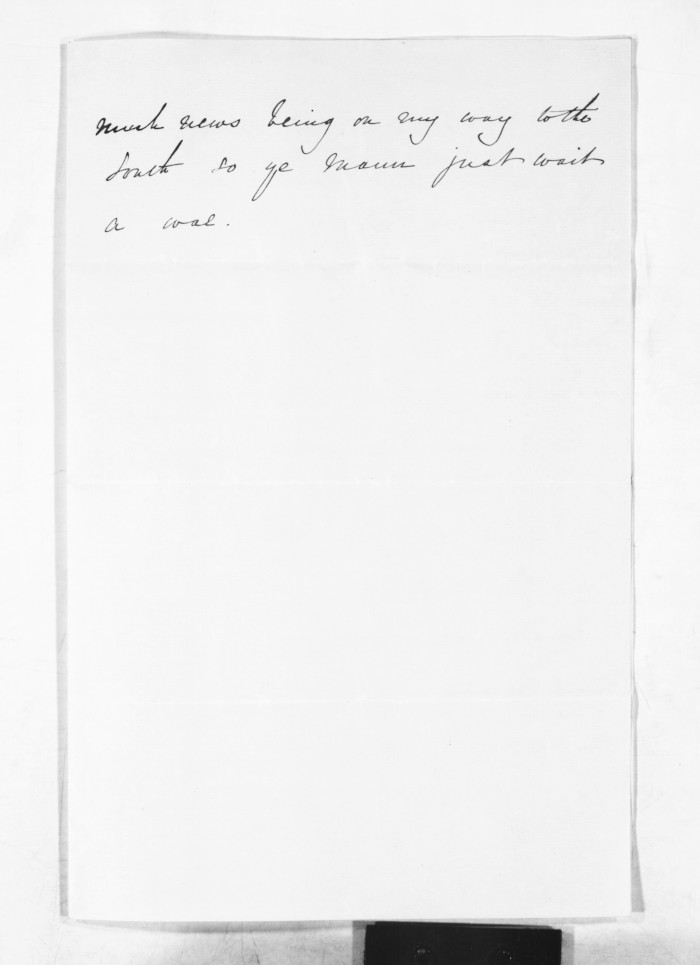 much news being on my way to the
South so ye maun just wait
a wae.